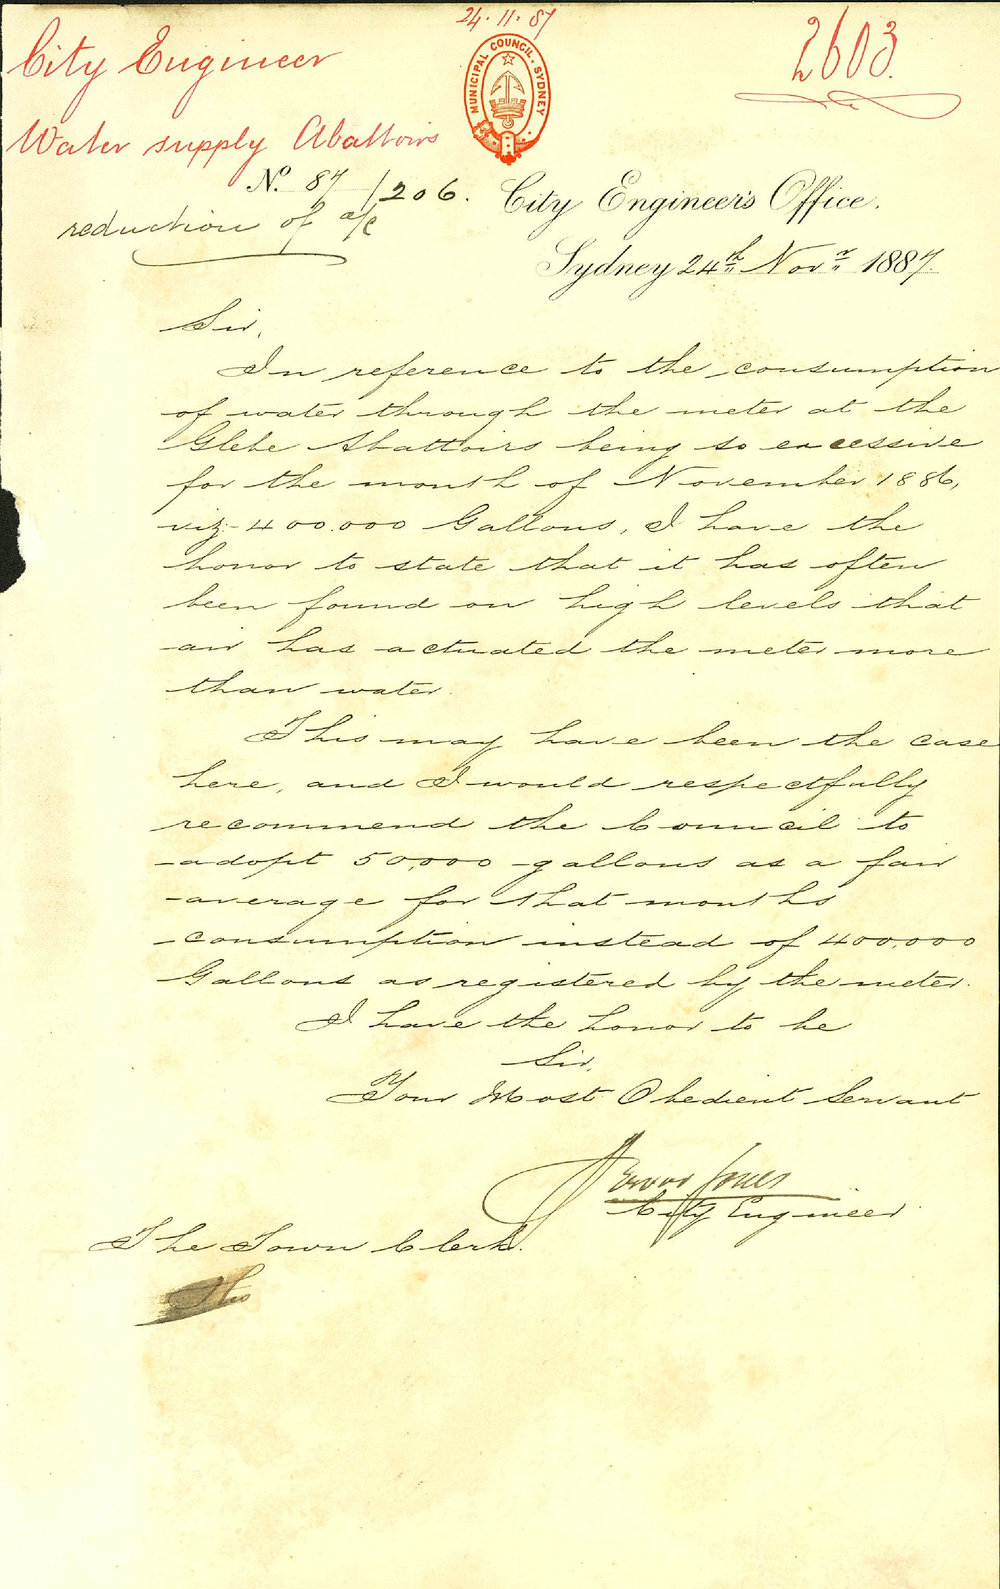 24.11.87
City Engineer
2603.
MUNICIPAL COUNCIL. SYDNEY
Water supply Abattoirs
No. 87/206.
reduction of a/c
City Engineer's Office.
Sydney 24th Novr 1887.
Sir,
In reference to the consumption
of water through the meter at the
Glebe Abattoirs being so excessive
for the month of November 1886,
viz- 400.000 Gallons, I have the
honor to state that it has often
been found on high levels that
air has actuated the meter more
than water.
This may have been the case
here, and I would respectfully
recommend the Council to
adopt 50,000 gallons as a fair
average for that months
consumption instead of 400,000
Gallons as registered by the meter.
I have the honor to be
Sir,
Your Most Obedient Servant
Trevor Jones
City Engineer
The Town Clerk.